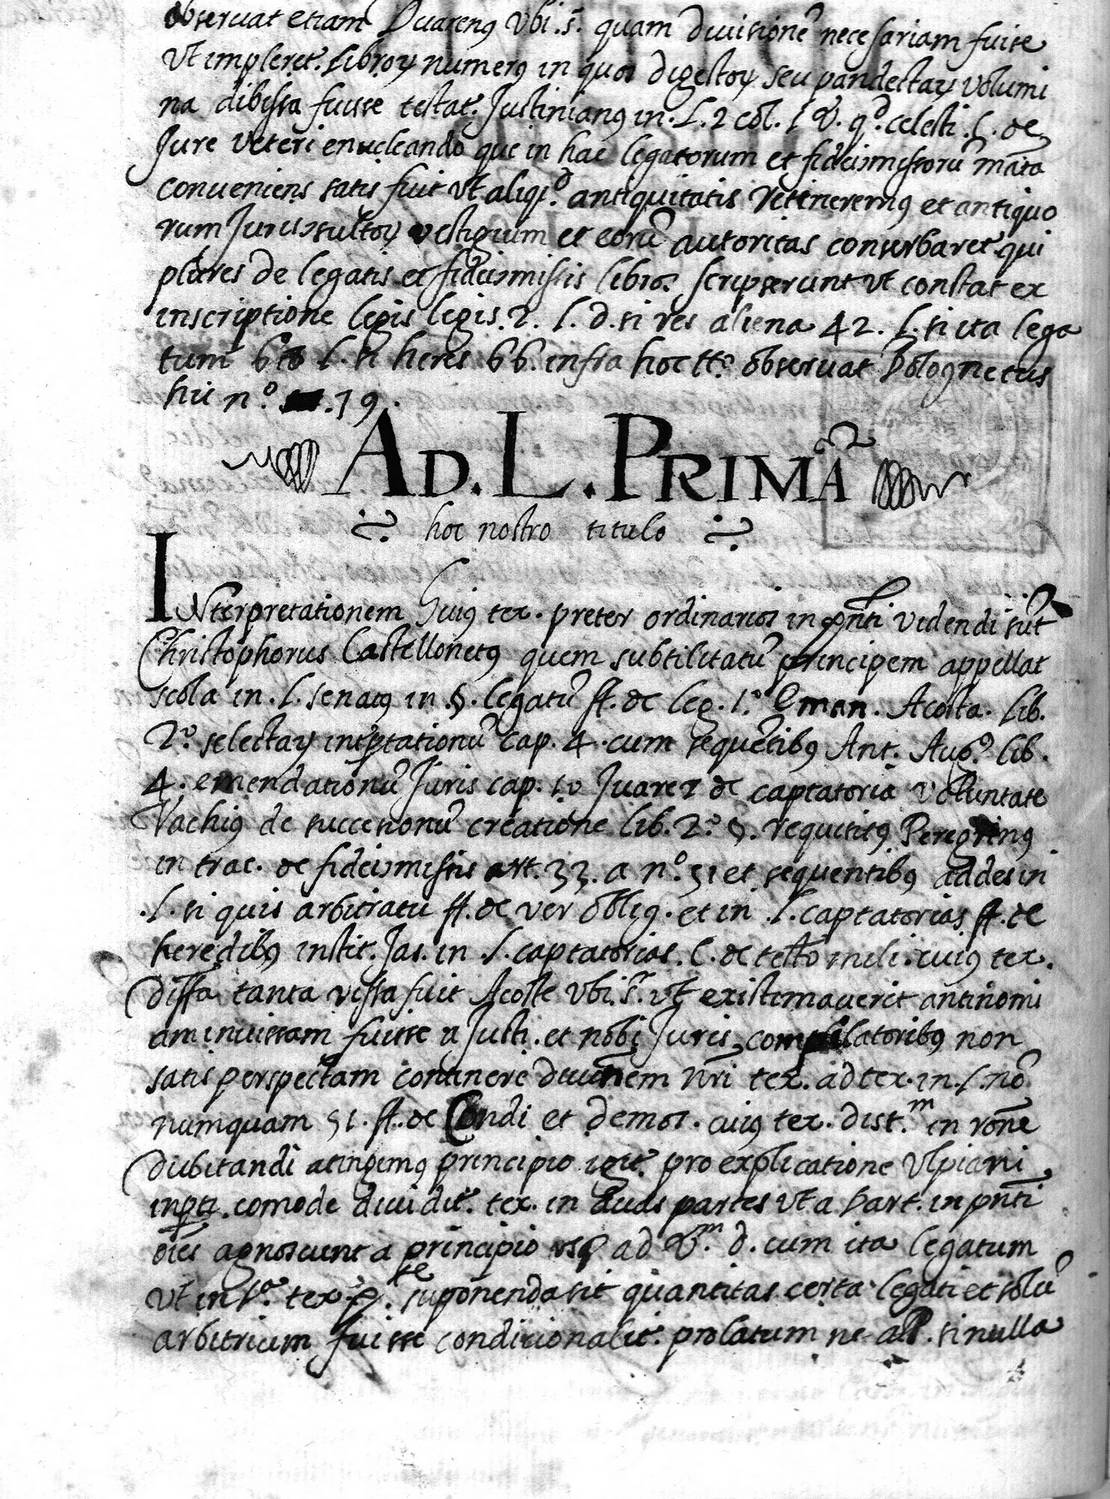 observat etiam Duarenus vbi .s. quam diuisionē necesariam fuise
vt impleret. libroꝝ numerus in quos digestoꝝ seu pandectaꝝ volumi
na dibissa fuisse testat. Justinianus in .L. 2 col. 1 v. qd. celesti .C. de
Jure veteri enucleando que in hac legatorum et fideicmissorū mata
conueniens satis fuit vt aliqd. antiquitatis retineremus et antiquo
rum Jurisconsultoꝝ vestigium et eorū autoritas conserbaret qui
plures de legatis et fideicmissis libros scripserunt vt constat ex
inscriptione legis legis. 2. l. d. si res aliena 42. l. si ita lega
tum l. si heres 66. infra hoc tt.o observat Bolognetus
hic n.o 19.
AD. L. PRIMĀ
hoc nostro titulo
INterpretationem huius tex. preter ordinarios in pnti videndi sūt
Christophorus Castellonetus quem subtilitatū principem appellat
scola in .l. senatus in §. legatū ff. de leg. 1.o Eman. Acosta. lib.
2.o selectaꝝ interptationū cap. 4. cum sequētibus Ant. Aug.o lib.
4. emendationū Juris cap. 10 Juarez de captatoria voluntate
Vachius de succetionū creatione lib. 2.o §. requisitus Peregrinus
in trac. de fideicmissis art. 33. a n.o 51 et sequentibus addes in
.l. si quis arbitratu ff. de ver oblig. et in .l. captatorias ff. de
heredibus instit. Jas. in .l. captatorias. C. de testto mili. cuius tex.
diffa tanta vissa fuit Acoste vbi .s. vt existimauerit antinomi
am inuissam fuisse a Justi. et nobi Juris compilatoribus non
satis perspectam continere decisionem nri tex. ad tex. in .l. nō
numquam 51. ff. de Condi et demos. cuius tex. dist.m in rone
dubitandi atingemus principio igit. pro explicatione Vlpiani
inpti. comode diuidit. tex. in duas partes vt a Bart. in pnti
oēs agnoscunt a principio vsq ad v.m d. cum ita legatum
vt in 1.a tex. pte. suponenda sit quantitas certa legati et solū
arbitrium fuisse condicionalit. prolatum ne al. si nulla